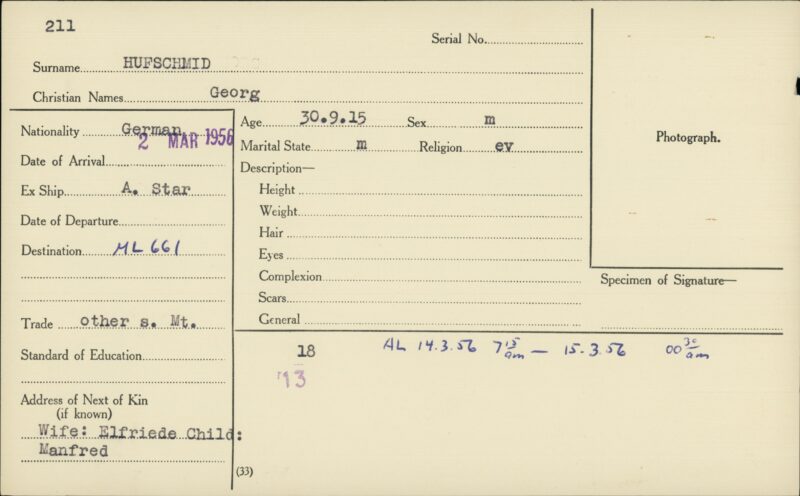 211
Serial No.
Surname HUFSCHMID
Christian Names Georg
Nationality German
2 MAR 1956
Date of Arrival
Ex Ship A. Star
Date of Departure
Destination ML 661
Trade other s. Mt.
Standard of Education
Address of Next of Kin
(if known)
Wife: Elfriede Child:
Manfred
Age 30.9.15 Sex m
Marital State m Religion ev
Description—
Height
Weight
Hair
Eyes
Complexion
Scars
General
Photograph.
Specimen of Signature—
18 AL 14.3.56 7 15 am — 15.3.56 00 30 am
13
(33)